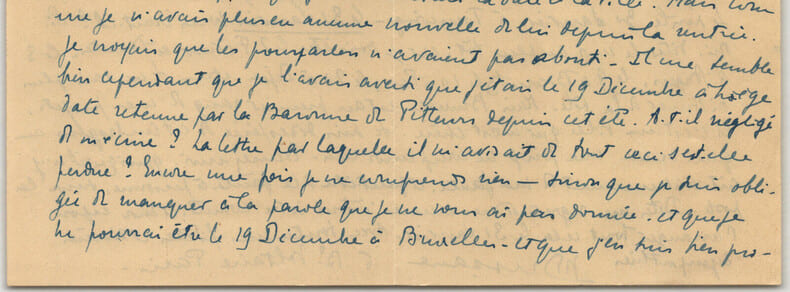 la date et la ville. Mais com
me je n'avais plus eu aucune nouvelle de lui depuis la rentrée.
je croyais que les pourparlers n'avaient pas abouti - Il me semble
bien cependant que je l'avais averti que j'étais le 19 Décembre à Liège
date retenue par la Baronne de depuis cet été. A-t-il négligé
de m'écrire ? La lettre par laquelle il m'avisait de tout ceci s'est-elle
perdue ? Encore une fois je ne comprends rien - sinon que je suis obli-
gée de manquer à la parole que je ne vous ai pas donnée. et que je
ne pourrai être le 19 Décembre à Bruxelles - et que j'en suis bien pro-